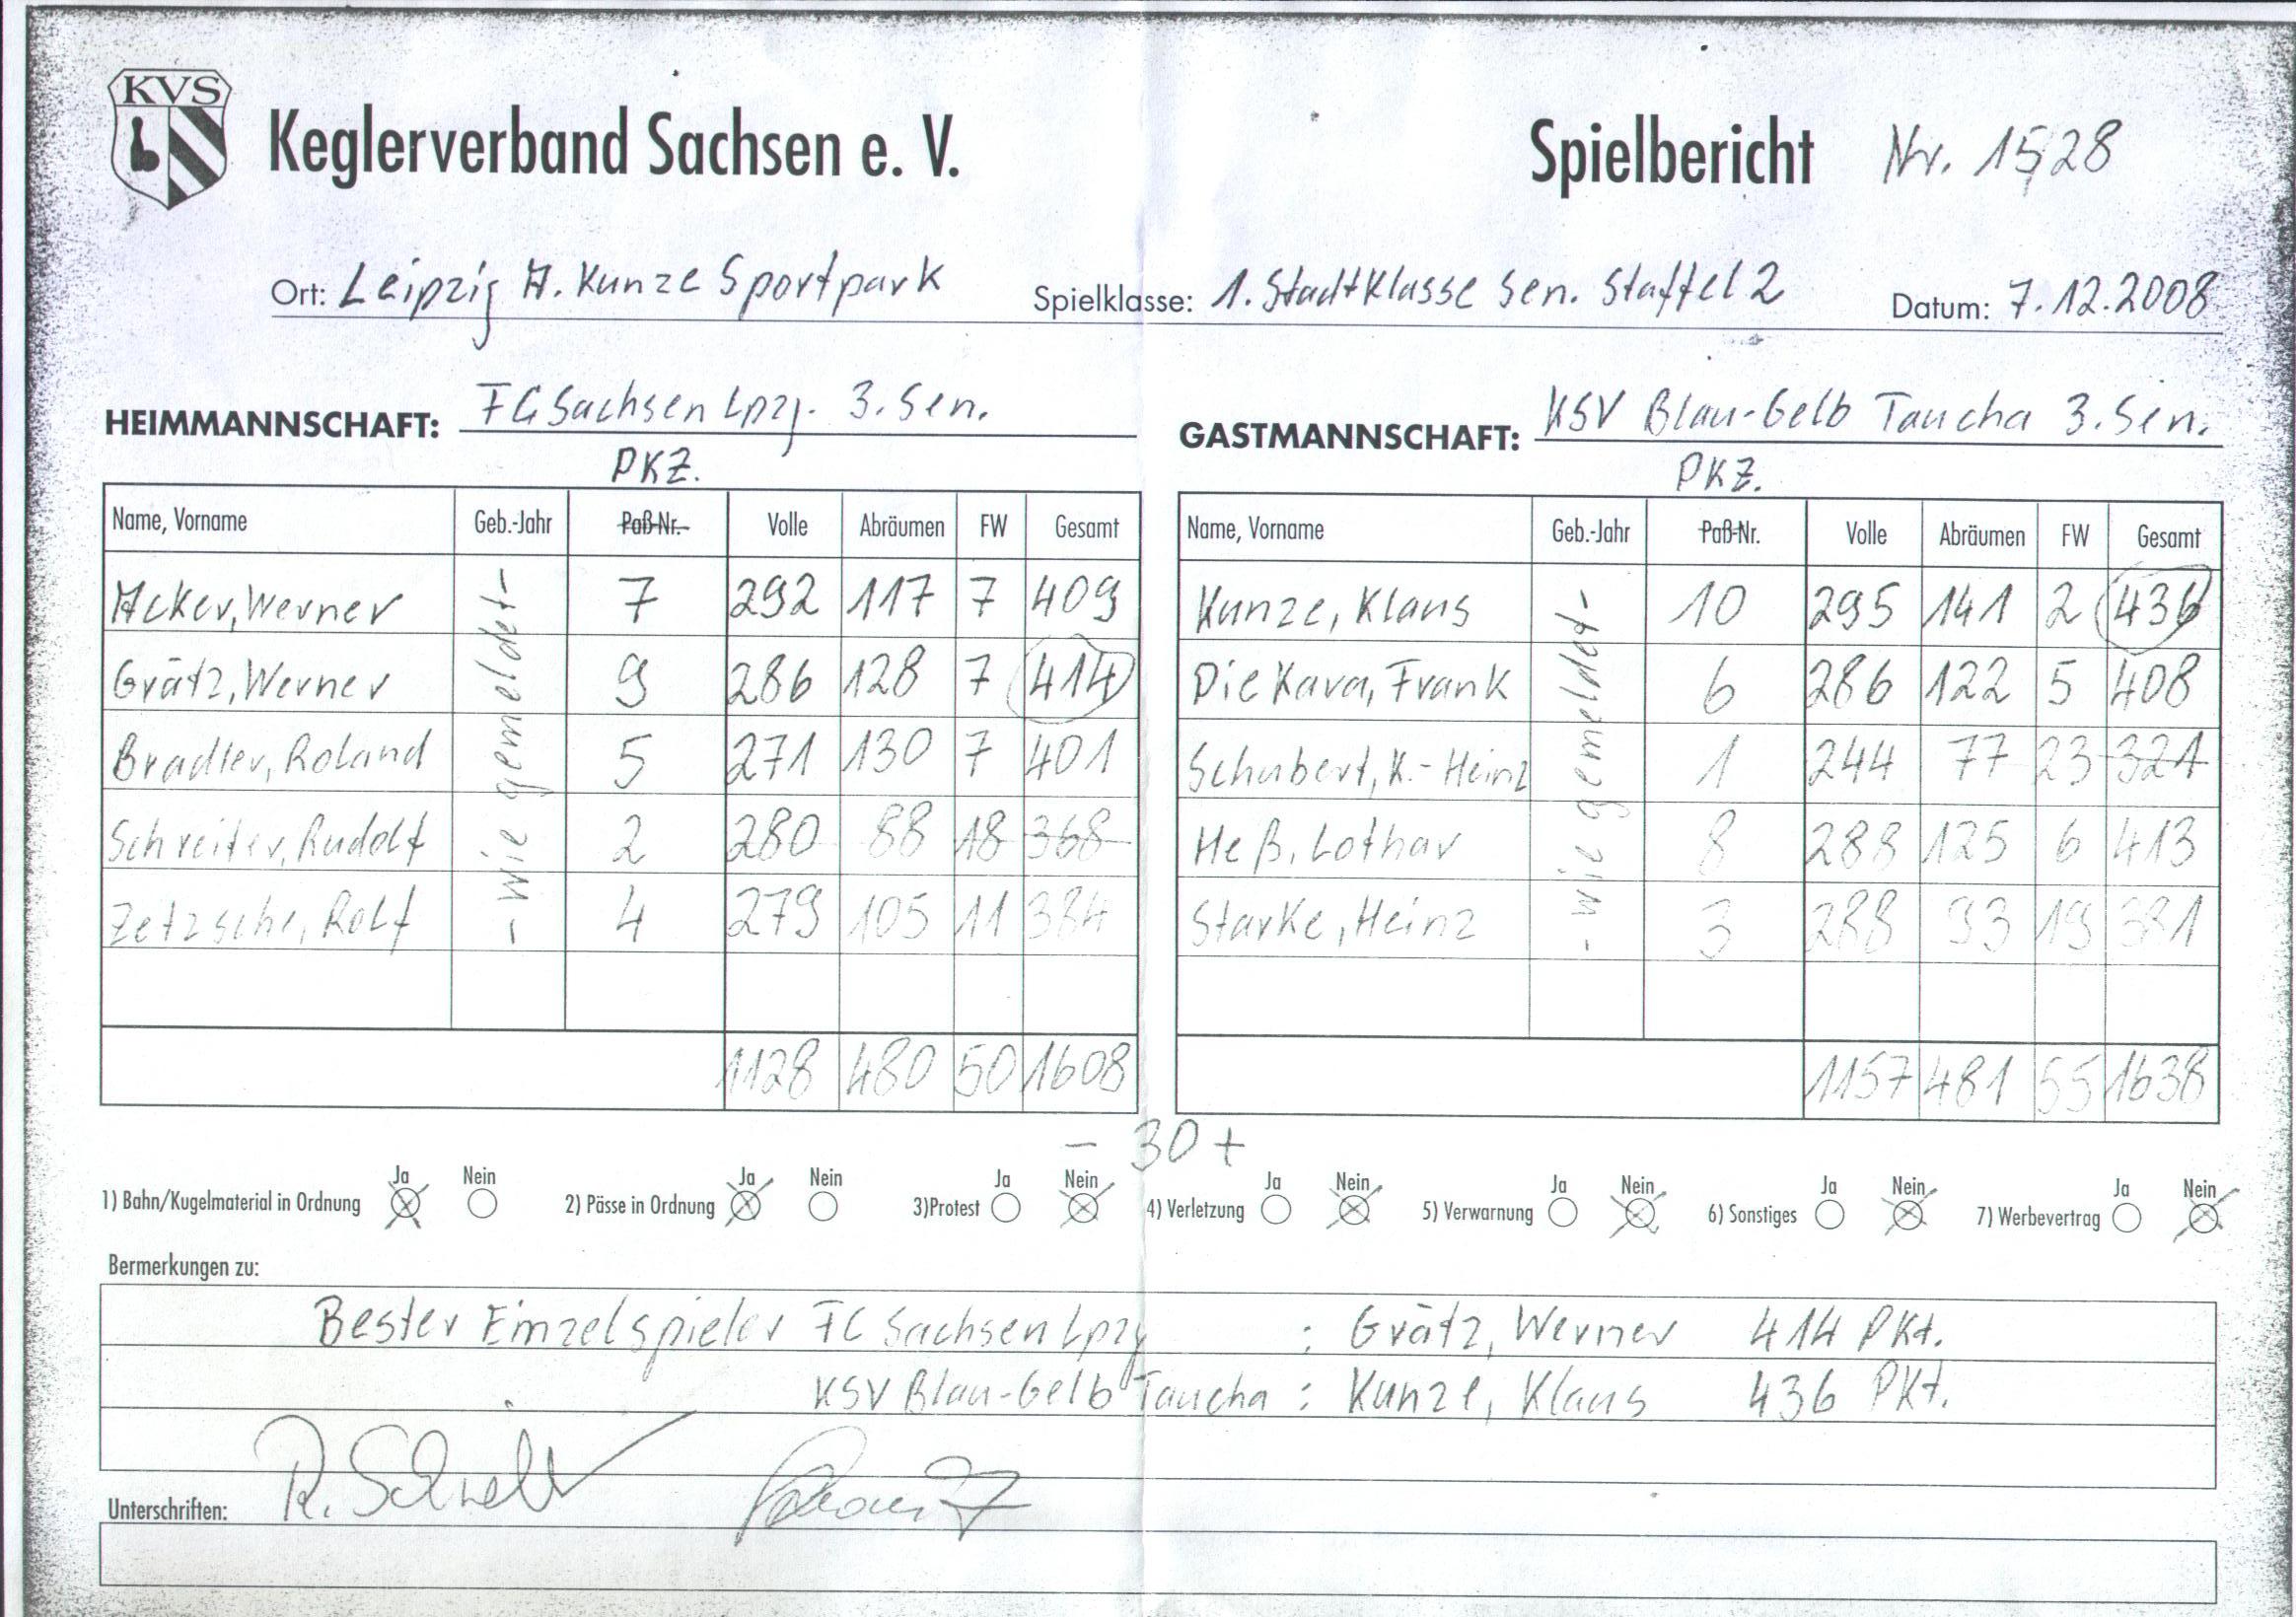 KVS
Keglerverband Sachsen e. V.
Spielbericht Nr. 15/28
Ort: Leipzig A. Kunze Sportpark Spielklasse: 1. Stadtklasse Sen. Staffel 2 Datum: 7.12.2008
HEIMMANNSCHAFT: FC Sachsen Lpzg. 3. Sen. GASTMANNSCHAFT: KSV Blau-Gelb Taucha 3. Sen.
PKZ. PKZ.
Name, Vorname Geb.-Jahr Paß-Nr. Volle Abräumen FW Gesamt Name, Vorname Geb.-Jahr Paß-Nr. Volle Abräumen FW Gesamt
- wie gemeldet - - wie gemeldet -
Acker, Werner 7 292 117 7 409 Kunze, Klaus 10 295 141 2 436
Grätz, Werner 9 286 128 7 414 Die Kara, Frank 6 286 122 5 408
Bradler, Roland 5 271 130 7 401 Schubert, K.-Heinz 1 244 77 23 321
Schreiter, Rudolf 2 280 88 18 368 Heß, Lothar 8 288 125 6 413
Zetzsche, Rolf 4 279 105 11 384 Starke, Heinz 3 288 93 19 381
1128 480 50 1608 1157 481 55 1638
- 30 +
1) Bahn/Kugelmaterial in Ordnung Ja Nein 2) Pässe in Ordnung Ja Nein 3)Protest Ja Nein 4) Verletzung Ja Nein 5) Verwarnung Ja Nein 6) Sonstiges Ja Nein 7) Werbevertrag Ja Nein
Bermerkungen zu:
Bester Einzelspieler FC Sachsen Lpzg : Grätz, Werner 414 Pkt.
KSV Blau-Gelb Taucha : Kunze, Klaus 436 Pkt.
Unterschriften: